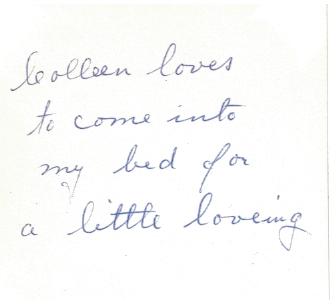 Colleen loves
to come into
my bed for
a little loveing